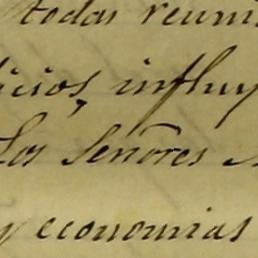 todas reuni
icios, influy
Los Señores
y economias